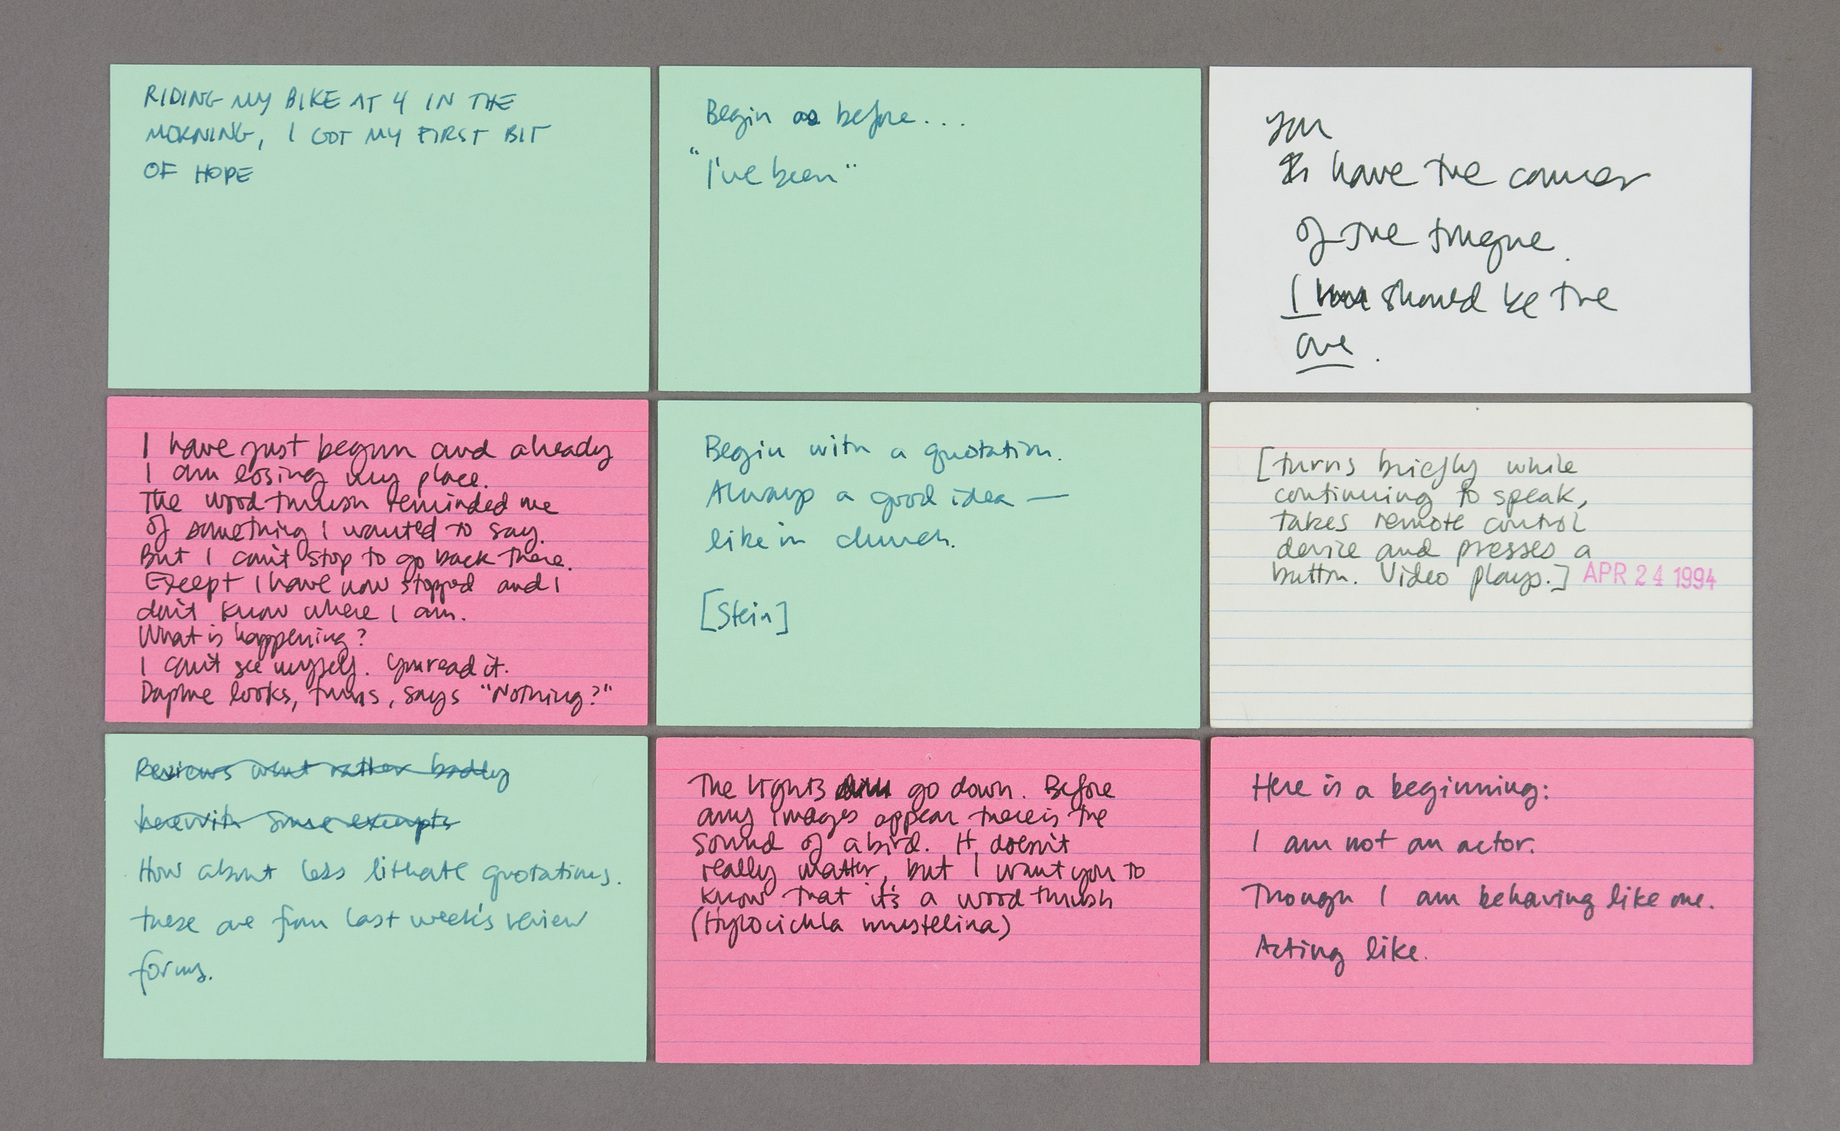 RIDING MY BIKE AT 4 IN THE
MORNING, I GOT MY FIRST BIT
OF HOPE
Begin as before...
"I've been"
you
have the corner
of the tongue.
I should be the
one.
I have just begun and already
I am losing my place.
The wood thrush reminded me
of something I wanted to say.
But I can't stop to go back there.
Except I have now stopped and I
don't know where I am.
What is happening?
I can't see myself. You read it.
Daphne looks, turns, says "Nothing?"
Begin with a quotation.
Always a good idea —
like in church.
[Stein]
[turns briefly while
continuing to speak,
takes remote control
device and presses a
button. Video plays.] APR 24 1994
Reviews went rather badly
herewith some excerpts
How about less quotations.
these are from last week's review
forms.
The lights go down. Before
any images appear there is the
sound of a bird. It doesn't
really matter, but I want you to
know that it's a wood thrush
(Hylocichla mustelina)
Here is a beginning:
I am not an actor.
Though I am behaving like one.
Acting like.